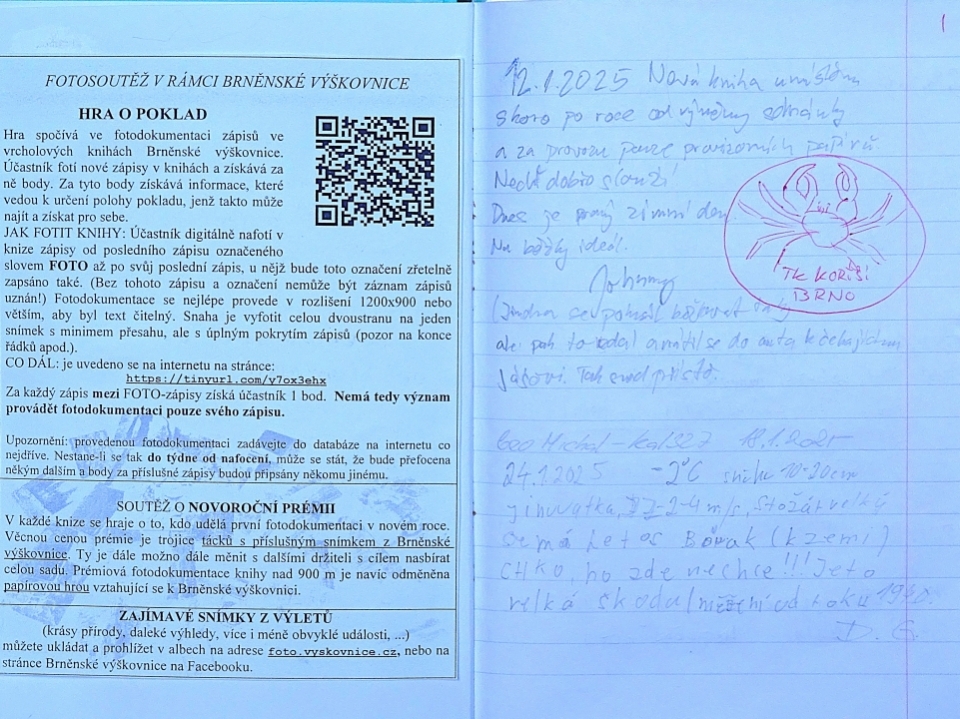 FOTOSOUTĚŽ V RÁMCI BRNĚNSKÉ VÝŠKOVNICE
HRA O POKLAD
Hra spočívá ve fotodokumentaci zápisů ve
vrcholových knihách Brněnské výškovnice.
Účastník fotí nové zápisy v knihách a získává za
ně body. Za tyto body získává informace, které
vedou k určení polohy pokladu, jenž takto může
najít a získat pro sebe.
JAK FOTIT KNIHY: Účastník digitálně nafotí v
knize zápisy od posledního zápisu označeného
slovem FOTO až po svůj poslední zápis, u nějž bude toto označení zřetelně
zapsáno také. (Bez tohoto zápisu a označení nemůže být záznam zápisů
uznán!) Fotodokumentace se nejlépe provede v rozlišení 1200x900 nebo
větším, aby byl text čitelný. Snaha je vyfotit celou dvoustranu na jeden
snímek s minimem přesahu, ale s úplným pokrytím zápisů (pozor na konce
řádků apod.).
CO DÁL: je uvedeno se na internetu na stránce:
https://tinyurl.com/y7ox3ehx
Za každý zápis mezi FOTO-zápisy získá účastník 1 bod. Nemá tedy význam
provádět fotodokumentaci pouze svého zápisu.
Upozornění: provedenou fotodokumentaci zadávejte do databáze na internetu co
nejdříve. Nestane-li se tak do týdne od nafocení, může se stát, že bude přefocena
někým dalším a body za příslušné zápisy budou připsány někomu jinému.
SOUTĚŽ O NOVOROČNÍ PRÉMII
V každé knize se hraje o to, kdo udělá první fotodokumentaci v novém roce.
Věcnou cenou prémie je trojice tácků s příslušným snímkem z Brněnské
výškovnice. Ty je dále možno dále měnit s dalšími držiteli s cílem nasbírat
celou sadu. Prémiová fotodokumentace knihy nad 900 m je navíc odměněna
papírovou hrou vztahující se k Brněnské výškovnici.
ZAJÍMAVÉ SNÍMKY Z VÝLETŮ
(krásy přírody, daleké výhledy, více i méně obvyklé události, ...)
můžete ukládat a prohlížet v albech na adrese foto.vyskovnice.cz, nebo na
stránce Brněnské výškovnice na Facebooku.
1
12.1.2025 Nová kniha umístěna
skoro po roce od výměny schránky
a za provozu pouze provizorních papírů.
Nechť dobře slouží
Dnes je pravý zimní den
Na běžky ideál.
Johnny
(Jindra se pokoušel běžkovat taky
ale pak to vzdal a vrátil se do auta k čekajícím
Tak snad příště.
TK KORÝŠI
BRNO
Geo Michal - 18.1.2025
24.1.2025 -2°C sníh 10-20cm
jinovatka, 2-4 m/s, Stožár velký
se má letos Bourat (k zemi)
CHKO ho zde nechce!!! Je to
velká škoda od roku 1940
D. G.